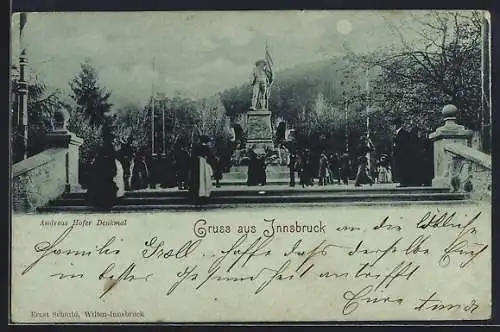 Andreas Hofer Denkmal
Gruss aus Innsbruck
an die löbliche
Familie Groll, hoffe daß derselbe Euch
in bester Gesundheit antrifft
Eure
Ernst Schmid, Wilten-Innsbruck